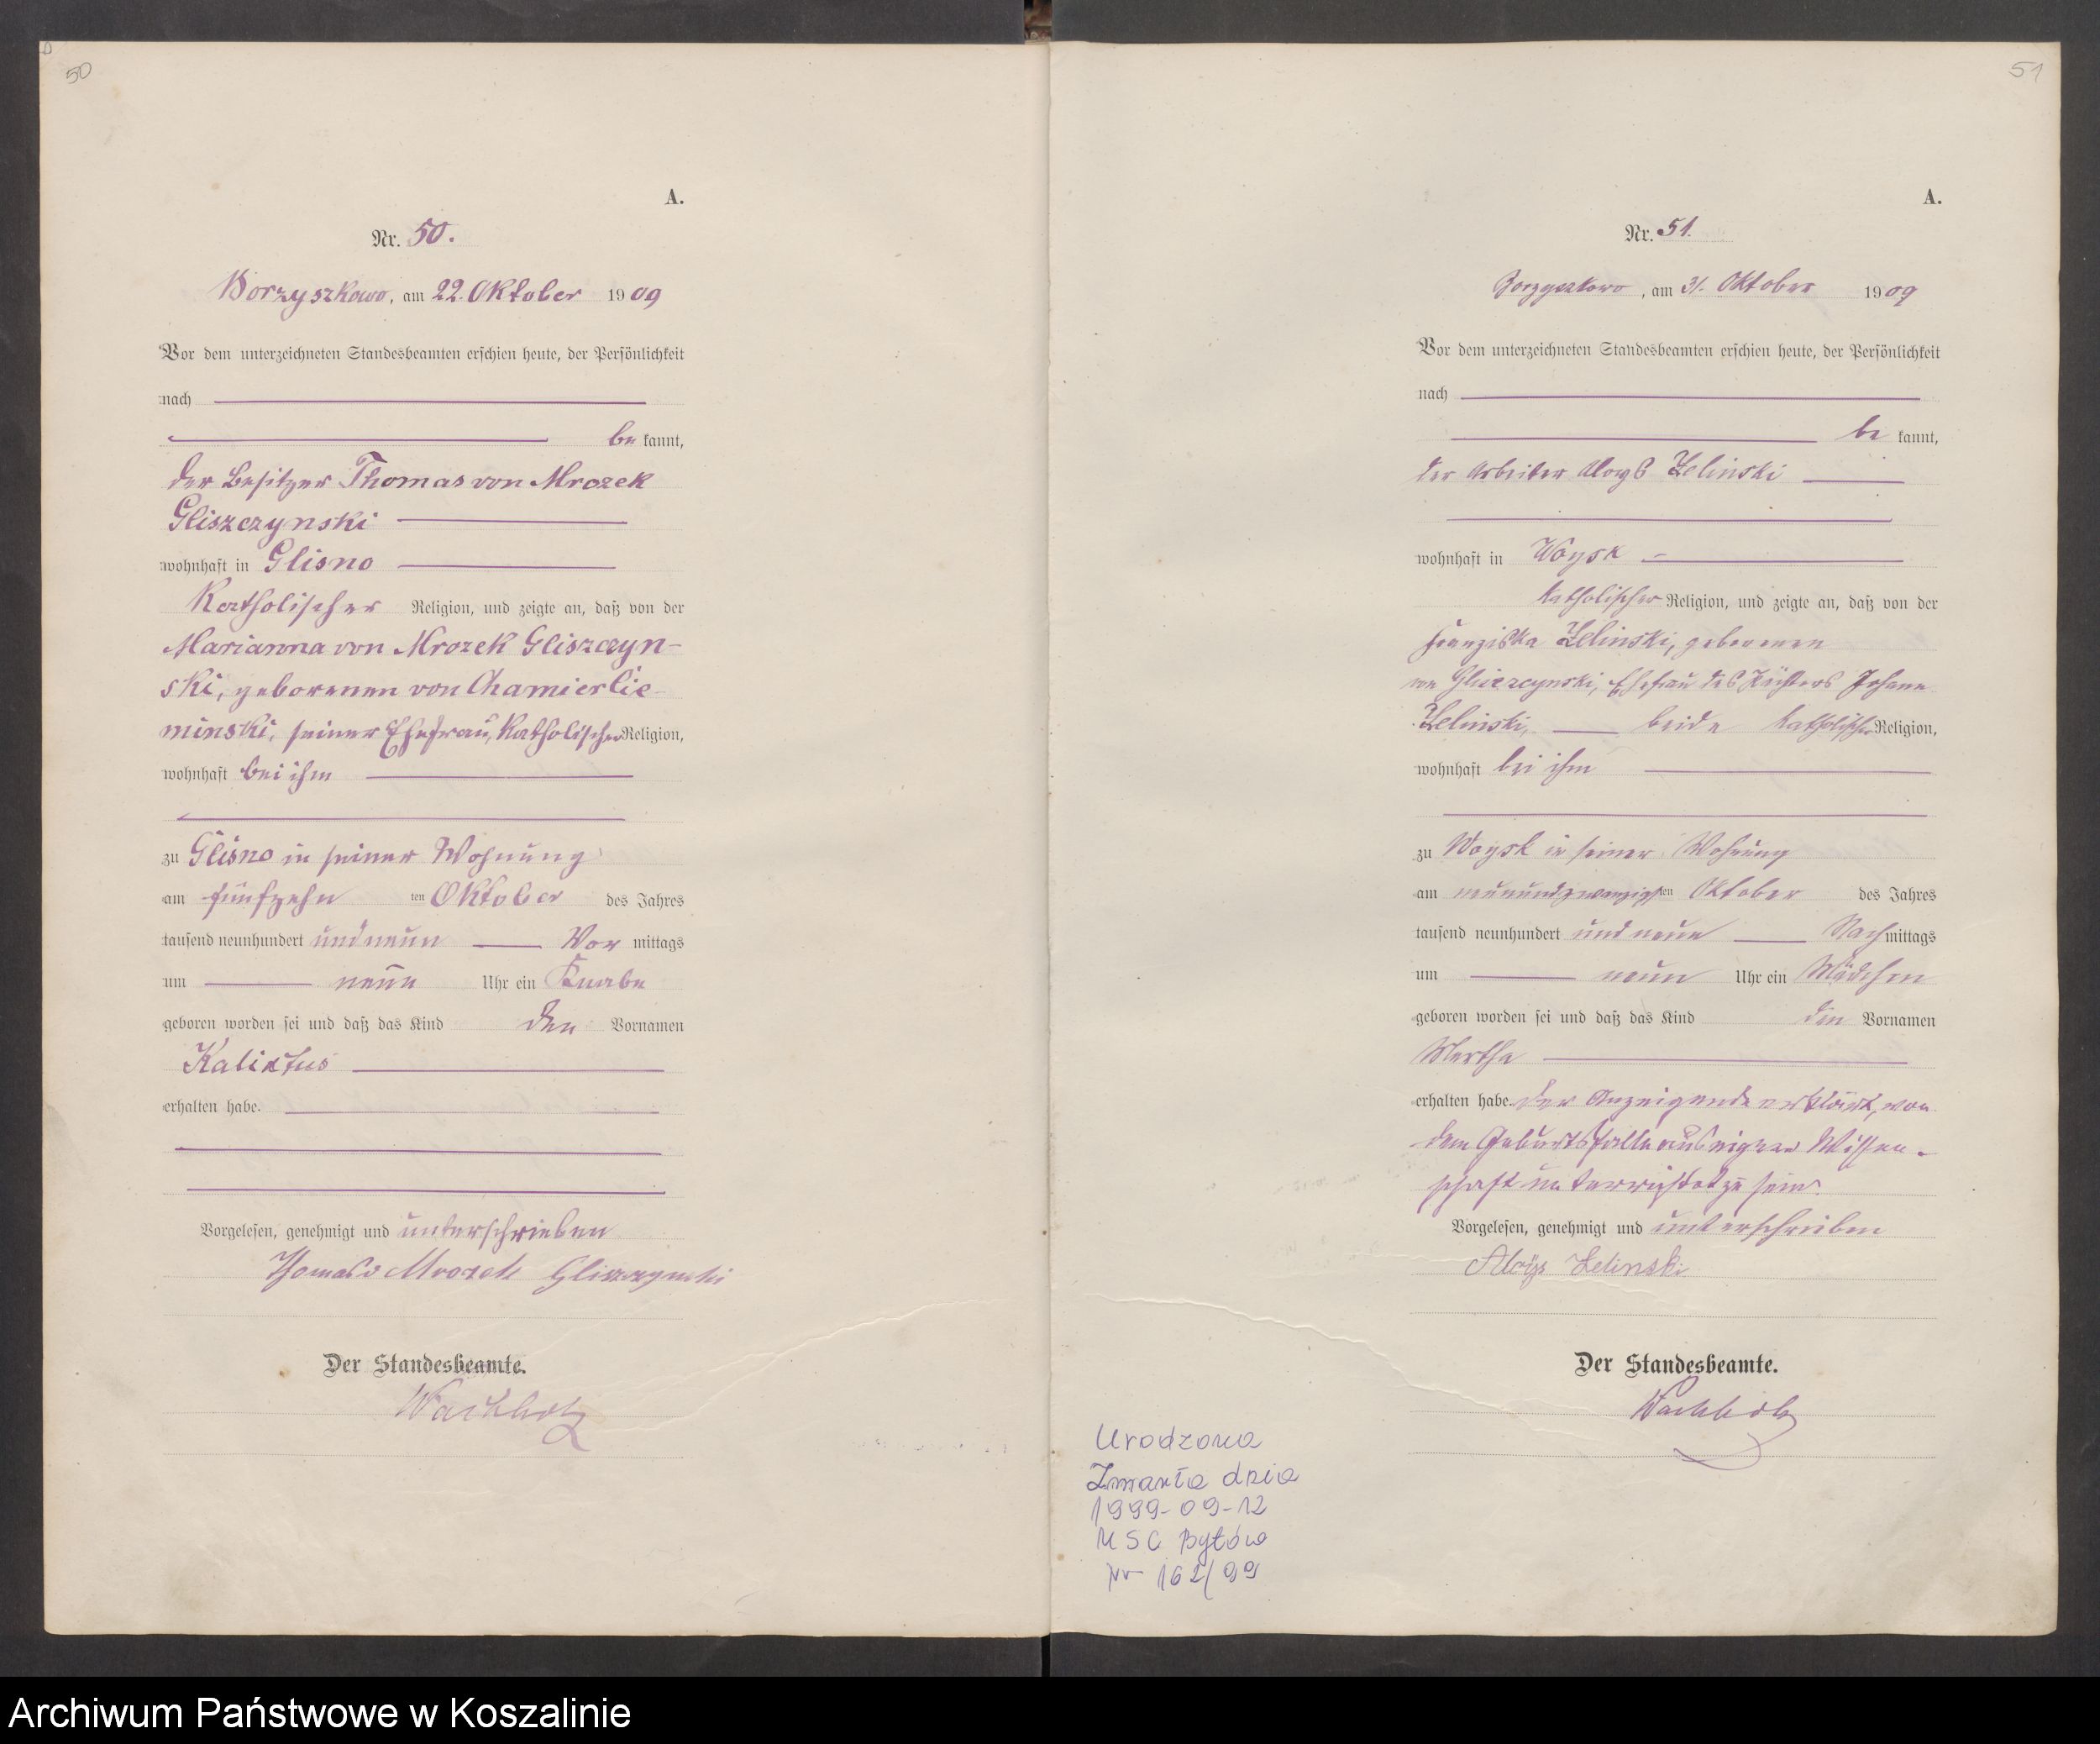 50
A.
Nr. 50.
Borzyszkowo, am 22. Oktober 1909
Vor dem unterzeichneten Standesbeamten erschien heute, der Persönlichkeit
nach
be kannt,
der Besitzer Thomas von Mrozek
Gliszczynski
wohnhaft in Glisno
Katholischer Religion, und zeigte an, daß von der
Marianna von Mrozek Gliszczyn-
ski, geborenen von Chamier Cie-
minski, seiner Ehefrau, Katholischer Religion,
wohnhaft bei ihm
zu Glisno in seiner Wohnung
am fünfzehn ten Oktober des Jahres
tausend neunhundert und neun Vor mittags
um neun Uhr ein Knabe
geboren worden sei und daß das Kind den Vornamen
Kalixtus
erhalten habe.
Vorgelesen, genehmigt und unterschrieben
Thomas v Mrozek Gliszczynski
Der Standesbeamte.
Wachholz
51
A.
Nr. 51.
Borzyszkowo, am 31. Oktober 1909
Vor dem unterzeichneten Standesbeamten erschien heute, der Persönlichkeit
nach
be kannt,
der Arbeiter Aloys Zelinski
wohnhaft in Woysk
katholischer Religion, und zeigte an, daß von der
Franziska Zelinski, geborenen
von Gliszczynski, Ehefrau des Johann
Zelinski, beide katholischer Religion,
wohnhaft bei ihm
zu Woysk in seiner Wohnung
am neunundzwanzigsten Oktober des Jahres
tausend neunhundert und neun Nach mittags
um neun Uhr ein Mädchen
geboren worden sei und daß das Kind den Vornamen
Martha
erhalten habe. Der Anzeigende erklärt, von
dem Geburtsfalle aus eigner Wissen-
schaft unterrichtet zu sein.
Vorgelesen, genehmigt und unterschrieben
Aloÿs Zelinski
Der Standesbeamte.
Wachholz
Urodzona
Zmarła dnia
1999-09-12
USC Bytów
Nr 162/99
Archiwum Państwowe w Koszalinie